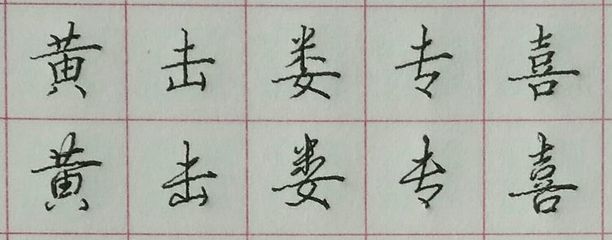 黄击娄专喜
黄击娄专喜